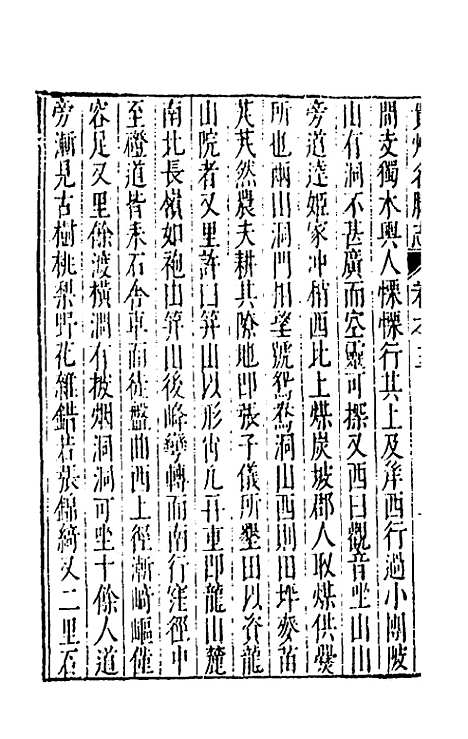 貴州名勝志 卷之三
間支獨木輿人慄慄行其上及岸西行過小關陂
山有洞不甚廣而空靈可探又西曰觀音坐山山
旁道達姬家冲稍西北上煤炭坡郡人取煤供爨
所也兩山洞門相望號鴛鴦洞山西則田坪麥苗
芃芃然農夫耕其隙地即張子儀所墾田以養龍
山院者又里許曰笄山以形肖凡百重即龍山麓
南北長嶺如袍山笄山後峰巒轉而南行窪徑中
至磴道皆禾石舍車而徒盤曲西上徑漸崎嶇僅
容足又里餘渡橫澗有披烟洞洞可坐十餘人道
旁漸見古樹桃梨野花雜錯若張錦綺又二里石